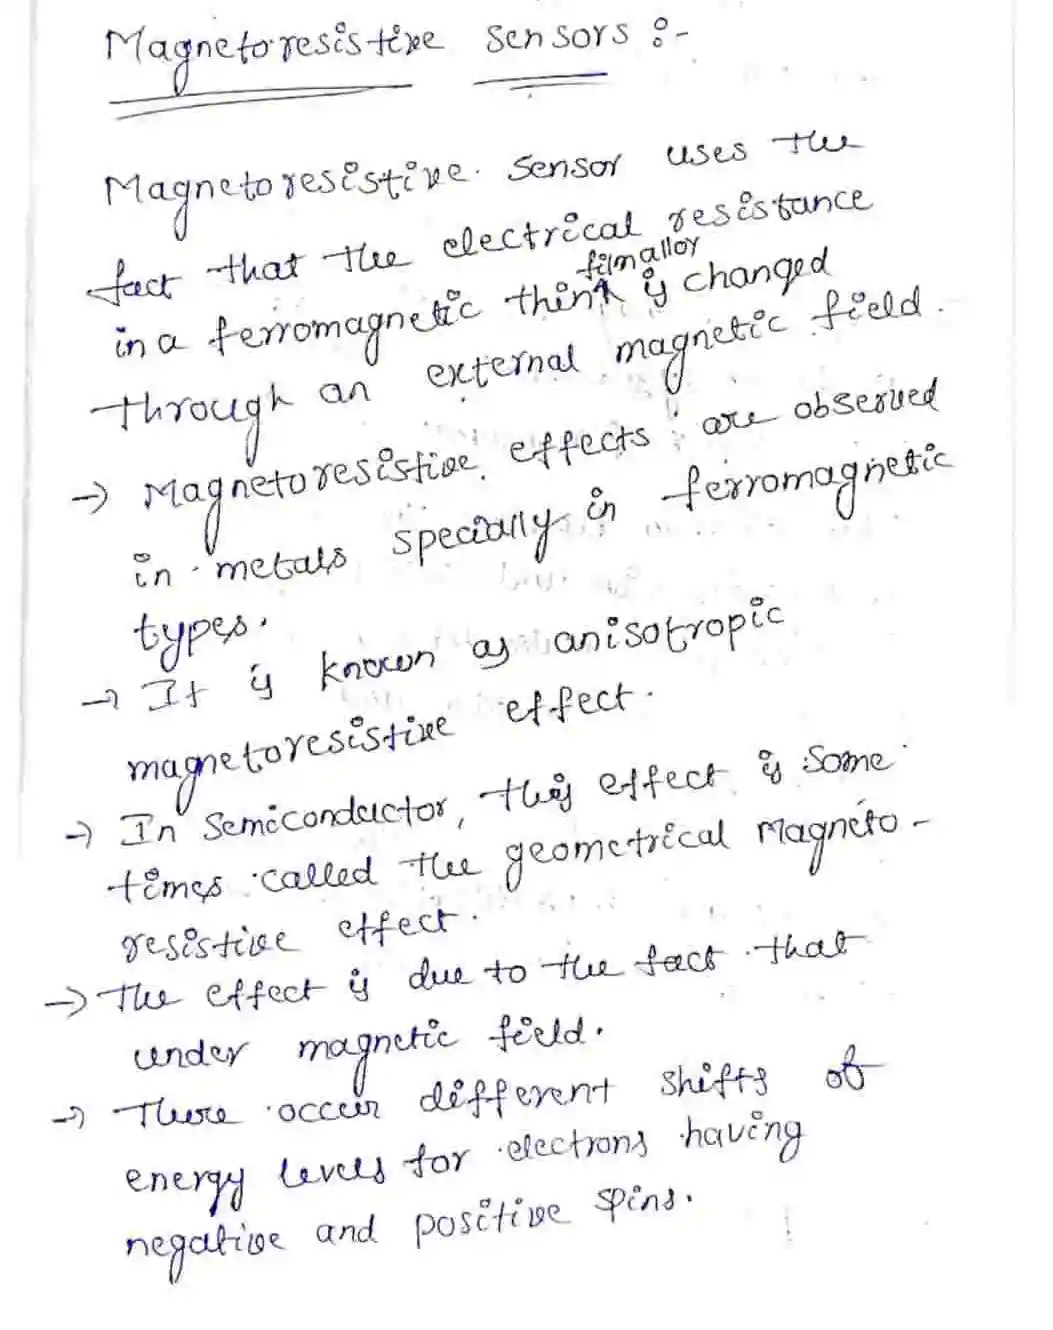 Magnetoresistive sensors :-
Magnetoresistive sensor uses the
fact that the electrical resistance
in a ferromagnetic thin film alloy is changed
through an external magnetic field.
→ Magnetoresistive effects are observed
in metals specially in ferromagnetic
types.
→ It is known as anisotropic
magnetoresistive effect.
→ In Semiconductor, this effect is some
times called the geometrical Magneto-
resistive effect.
→ The effect is due to the fact that
under magnetic field.
→ There occur different shifts of
energy levels for electrons having
negative and positive spins.